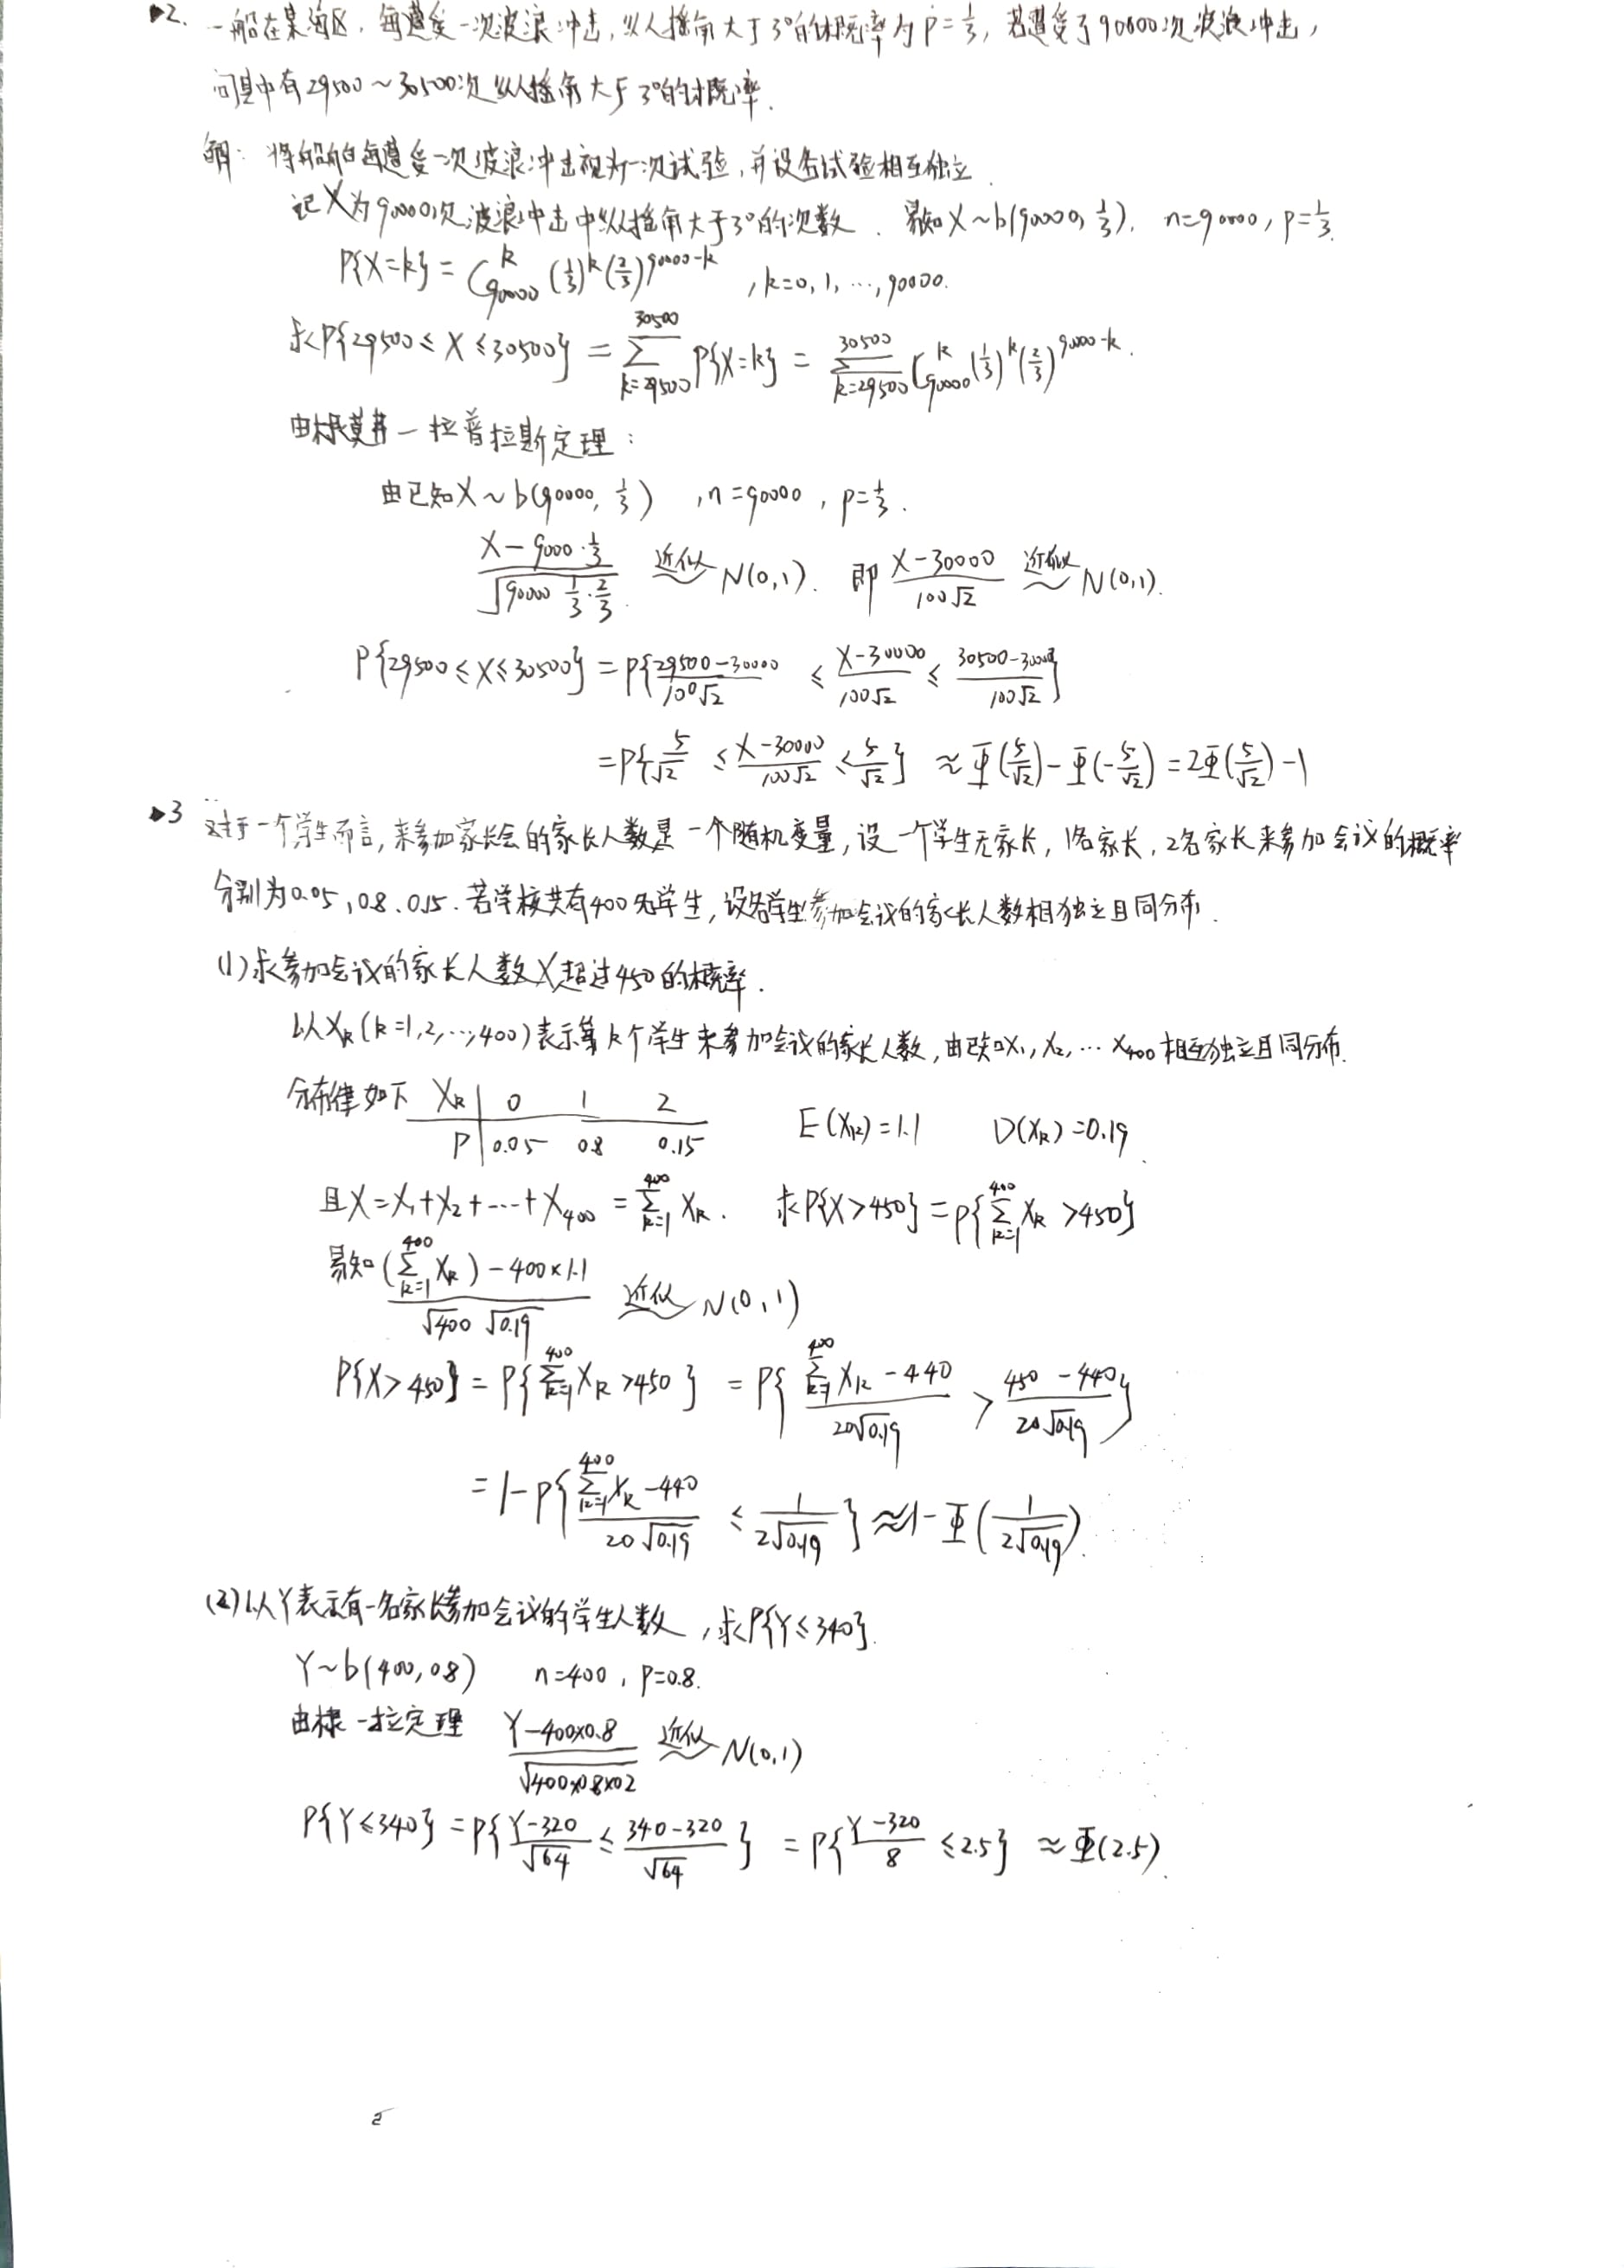 ▶2. 一船在某海区,每遭受一次波浪冲击,纵摇角大于3°的概率为p=1/3,若遭受了90000次波浪冲击,
问其中有29500~30500次纵摇角大于3°的概率.
解: 将船舶每遭受一次波浪冲击视为一次试验,并设各试验相互独立.
记X为90000次波浪冲击中纵摇角大于3°的次数. 易知X~b(90000, 1/3). n=90000, p=1/3.
P{X=k} = C_{90000}^k (1/3)^k (2/3)^{90000-k} , k=0,1,…,90000.
求P{29500≤X≤30500} = ∑_{k=29500}^{30500} P{X=k} = ∑_{k=29500}^{30500} C_{90000}^k (1/3)^k (2/3)^{90000-k}.
由棣莫弗-拉普拉斯定理:
由已知X~b(90000, 1/3) , n=90000, p=1/3.
(X-9000·1/3)/√(90000 1/3·2/3) 近似~ N(0,1). 即 (X-30000)/(100√2) 近似~ N(0,1).
P{29500≤X≤30500} = P{(29500-30000)/(100√2) ≤ (X-30000)/(100√2) ≤ (30500-30000)/(100√2)}
=P{-5/√2 ≤ (X-30000)/(100√2) ≤ 5/√2} ≈ Φ(5/√2)-Φ(-5/√2) = 2Φ(5/√2)-1
▶3 对于一个学生而言,来参加家长会的家长人数是一个随机变量,设一个学生无家长,1名家长,2名家长来参加会议的概率
分别为0.05,0.8、0.15.若学校共有400名学生,设各学生参加会议的家长人数相独立且同分布.
(1)求参加会议的家长人数X超过450的概率.
以X_k(k=1,2,…,400)表示第k个学生来参加会议的家长人数,由已知X₁,X₂,…X₄₀₀相互独立且同分布.
分布律如下 X_k | 0 1 2
P | 0.05 0.8 0.15 E(X_k)=1.1 D(X_k)=0.19.
且X=X₁+X₂+…+X₄₀₀ = ∑_{k=1}^{400} X_k. 求P{X>450} = P{∑_{k=1}^{400} X_k >450}
易知 ((∑_{k=1}^{400} X_k)-400×1.1)/(√400 √0.19) 近似~ N(0,1)
P{X>450} = P{∑_{k=1}^{400} X_k >450} = P{(∑_{k=1}^{400} X_k-440)/(20√0.19) > (450-440)/(20√0.19)}
= 1-P{(∑_{k=1}^{400} X_k-440)/(20√0.19) ≤ 1/(2√0.19)} ≈1-Φ(1/(2√0.19)).
(2)以Y表示有一名家长参加会议的学生人数,求P{Y≤340}.
Y~b(400,0.8) n=400, p=0.8.
由棣-拉定理 (Y-400×0.8)/√(400×0.8×0.2) 近似~ N(0,1)
P{Y≤340} = P{(Y-320)/√64 ≤ (340-320)/√64} = P{(Y-320)/8 ≤2.5} ≈Φ(2.5).
2